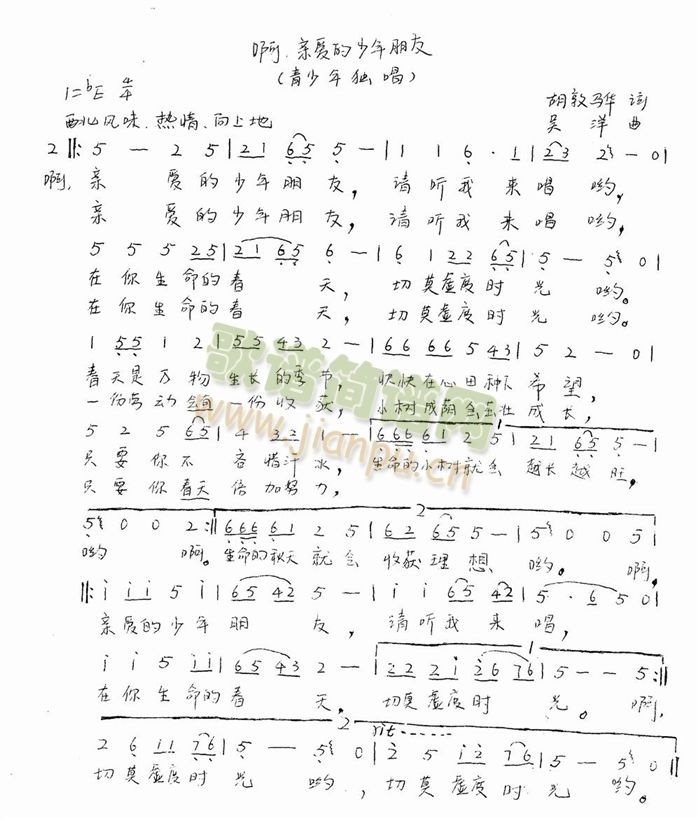 啊，亲爱的少年朋友
（青少年独唱）
1=ᵇE 4/4
胡敦骅 词
西北风味、热情、向上地
吴 洋 曲
2 ‖: 5 — 2 5 | 2 1 6 5 5 — | 1 1 6 · 1 | 2 3 2 — 0 |
啊，亲 爱的少年朋 友， 请听我 来唱 哟，
亲 爱的少年朋 友， 请听我 来唱 哟，
5 5 5 2 5 | 2 1 6 5 6 — | 6 1 2 2 6 5 | 5 — 5 0 |
在你生命的春 天， 切莫虚度时 光 哟。
在你生命的春 天， 切莫虚度时 光 哟。
1 5 5 1 2 | 5 5 4 3 2 — | 6 6 6 6 5 4 3 | 5 2 — 0 |
春天是万 物 生长的季节， 快快在心田种下 希 望，
一份劳动 一份收获， 小树成阴 茁壮 成长，
5 2 5 6 5 | 4 3 2 1 — | 6 6 6 6 1 2 5 | 2 1 6 5 5 — |
只要你不 吝惜汗 水， 生命的小树就会 越长越 旺，
只要你春天 倍加努 力，
5 0 0 2 :‖ 6 6 6 6 1 2 5 | 6 2 6 5 5 — | 5 0 0 5 |
哟 啊。 生命的秋天 就会 收获理想 哟。 啊，
‖: i i i 5 i | 6 5 4 2 5 — | i i 6 5 4 2 | 5 · 6 5 0 |
亲爱的少年朋 友， 请听我来 唱，
i i 5 i i | 6 5 4 3 2 — | 2 2 2 i 2 6 7 6 | 5 — — 5 :‖
在你生命的春 天， 切莫虚度时 光。 啊，
2 rit
2 6 i i 7 6 | 5 — 5 0 | 2 5 i 2 7 6 | 5 — 5 0 ‖
切莫虚度时 光 哟， 切莫虚度时 光 哟。
歌谱简谱网
www.jianpu.cn